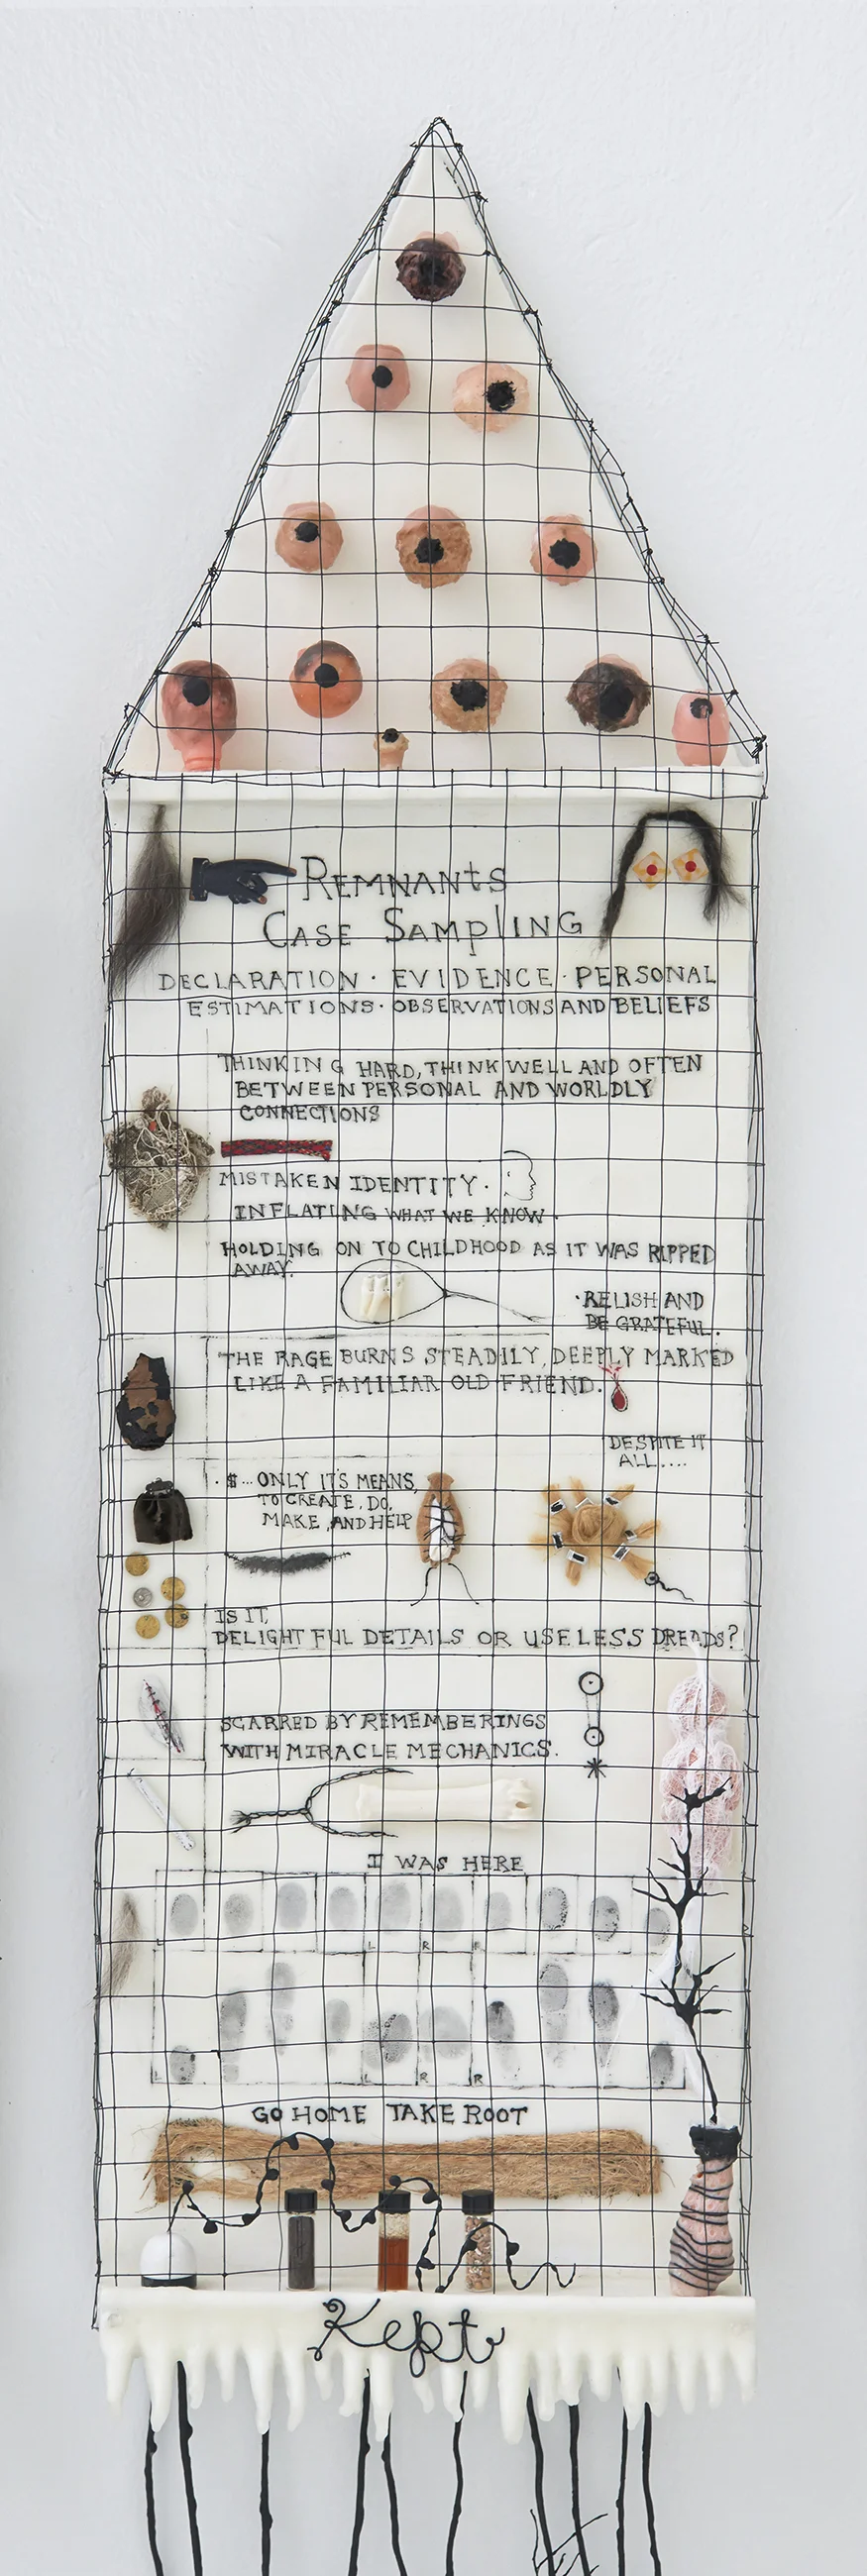 REMNANtS
CASE SAmplING
DECLARATION · EVIDENCE · PERSONAL
ESTIMATIONS · OBSERVATIONS AND BELIEFS
THINKING HARD, THINK WELL AND OFTEN
BETWEEN PERSONAL AND WORLDLY
CONNECTIONS
MISTAKEN IDENTITY.
INFLATING WHAT WE KNOW.
HOLDING ON TO CHILDHOOD AS IT WAS RIPPED
AWAY.
·RELISH AND
BE GRATEFUL.
THE RAGE BURNS STEADILY, DEEPLY MARKED
LIKE A FAMILIAR OLD FRIEND.
DESPITE IT
ALL....
·$... ONLY IT'S MEANS,
TO CREATE, DO,
MAKE, AND HELP
IS IT,
DELIGHTFUL DETAILS OR USELESS DREADS?
SCARRED BY REMEMBERINGS
WITH MIRACLE MECHANICS.
I WAS HERE
L R R
L L R R
GO HOME TAKE ROOT
Kept